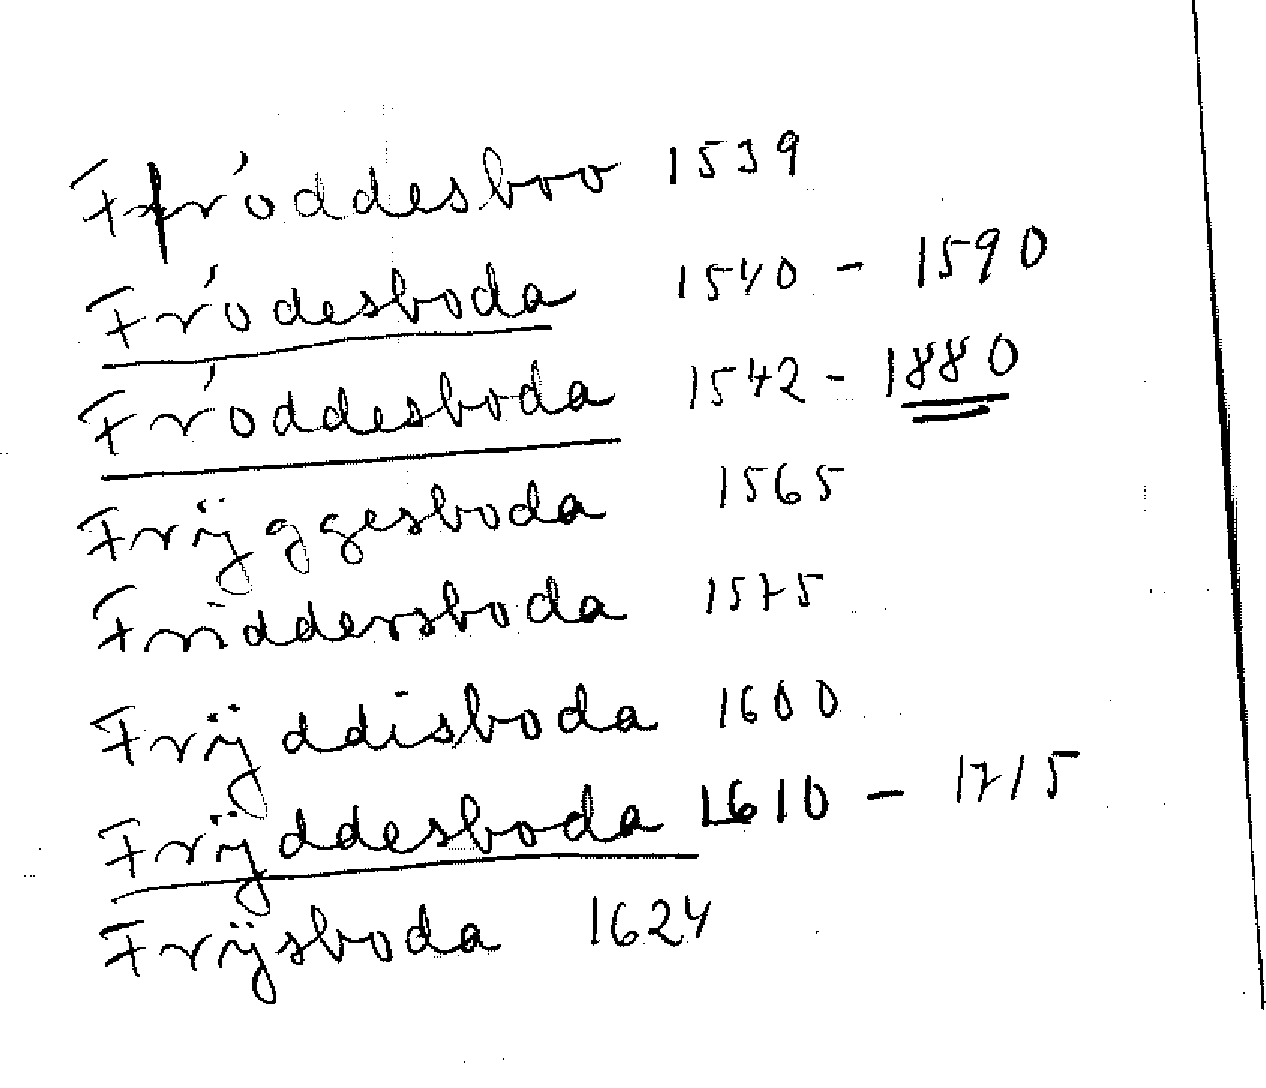 Ffróddesboo 1539
Fródesboda 1540 - 1590
Fróddesboda 1542 - 1880
Frÿggesboda 1565
Friddersboda 1575
Frÿddisboda 1600
Frÿddesboda 1610 - 1715
Frÿsboda 1624